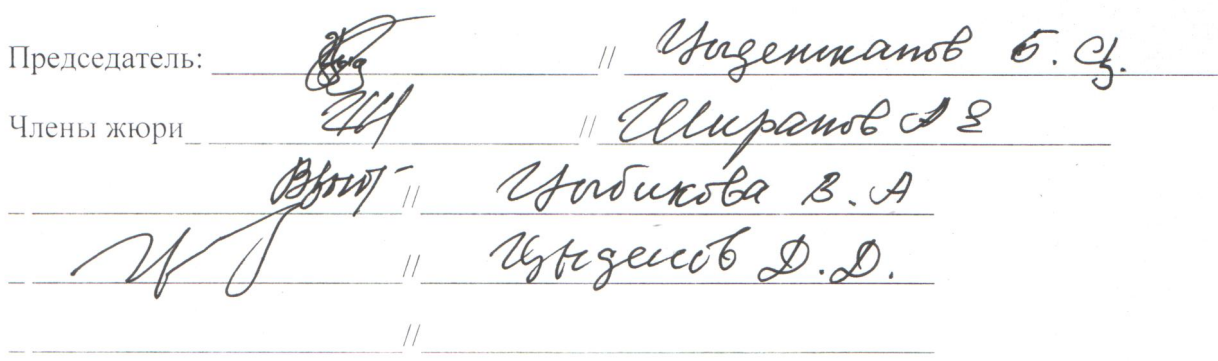 Председатель: // Цыденжапов Б. Ц.
Члены жюри // Ширапов А Е
// Цыбикова В. А
// Цыденов Д. Д.
//